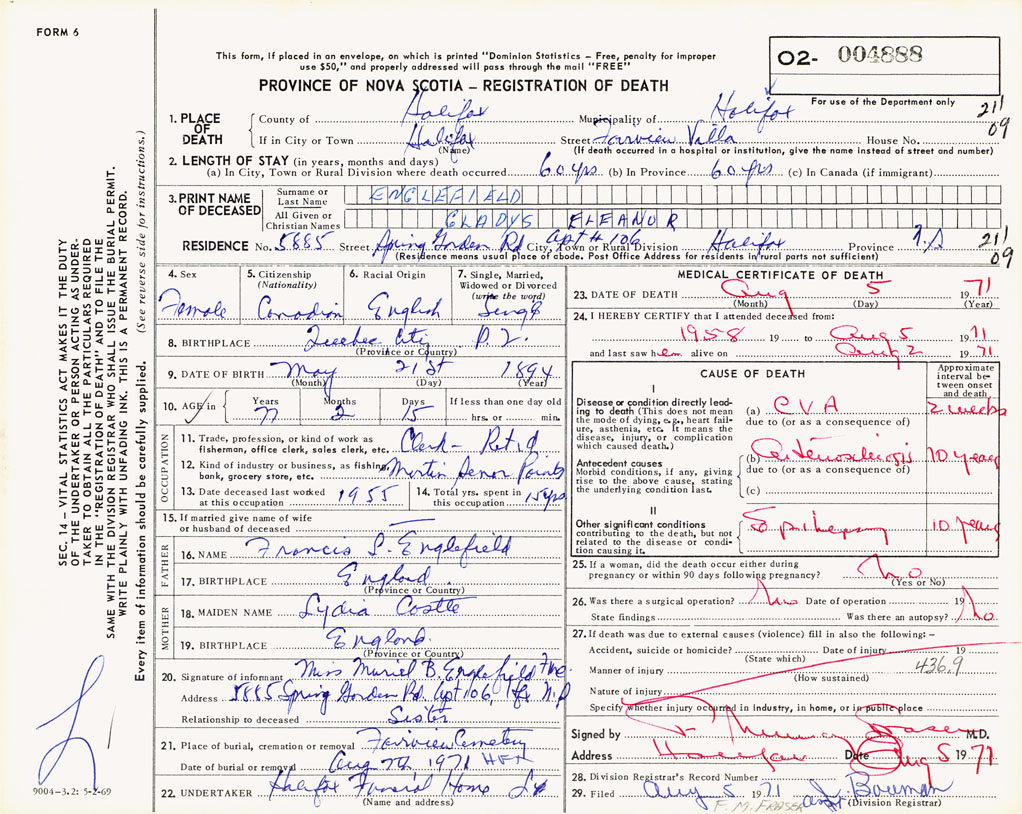 FORM 6
This form, if placed in an envelope, on which is printed "Dominion Statistics – Free, penalty for improper
use $50," and properly addressed will pass through the mail "FREE"
O2- 004888
PROVINCE OF NOVA SCOTIA – REGISTRATION OF DEATH
For use of the Department only
211
09
1. PLACE OF DEATH
County of Halifax Municipality of Halifax
If in City or Town Halifax Street Fairview Villa House No.
(Name) (If death occurred in a hospital or institution, give the name instead of street and number)
2. LENGTH OF STAY (in years, months and days)
(a) In City, Town or Rural Division where death occurred 60 yrs (b) In Province 60 yrs (c) In Canada (if immigrant)
3. PRINT NAME OF DECEASED
Surname or Last Name ENGLEFIELD
All Given or Christian Names GLADYS ELEANOR
RESIDENCE No. 5885 Street Spring Gorden Rd Apt # 106 City, Town or Rural Division Halifax Province N.S
(Residence means usual place of abode. Post Office Address for residents in rural parts not sufficient)
211
09
4. Sex Female
5. Citizenship (Nationality) Canadian
6. Racial Origin English
7. Single, Married, Widowed or Divorced (write the word) Single
8. BIRTHPLACE Quebec City P.Q.
(Province or Country)
9. DATE OF BIRTH May 21st 1894
(Month) (Day) (Year)
10. AGE in Years 77 Months 2 Days 15 If less than one day old hrs. or min.
OCCUPATION
11. Trade, profession, or kind of work as fisherman, office clerk, sales clerk, etc. Clerk – Ret'd
12. Kind of industry or business, as fishing, bank, grocery store, etc. Martin Senor Paints
13. Date deceased last worked at this occupation 1955
14. Total yrs. spent in this occupation 15 yrs
15. If married give name of wife or husband of deceased —
FATHER
16. NAME Francis S. Englefield
17. BIRTHPLACE England
(Province or Country)
MOTHER
18. MAIDEN NAME Lydia Castle
19. BIRTHPLACE England
(Province or Country)
20. Signature of informant Miss Muriel B. Englefield
Address 5885 Spring Gorden Rd. Apt 106, Hfx N.S
Relationship to deceased Sister
21. Place of burial, cremation or removal Fairview Cemetery
Date of burial or removal Aug 7th 1971 HFX
22. UNDERTAKER Halifax Funeral Home Ld
(Name and address)
MEDICAL CERTIFICATE OF DEATH
23. DATE OF DEATH Aug 5 1971
(Month) (Day) (Year)
24. I HEREBY CERTIFY that I attended deceased from:
1958 19 to Aug 5 1971
and last saw her alive on Aug 2 1971
CAUSE OF DEATH
Approximate interval between onset and death
I
Disease or condition directly leading to death (This does not mean the mode of dying, e.g., heart failure, asthenia, etc. It means the disease, injury, or complication which caused death.)
(a) CVA 2 weeks
due to (or as a consequence of)
Antecedent causes
Morbid conditions, if any, giving rise to the above cause, stating the underlying condition last.
(b) Arteriosclerosis 10 years
due to (or as a consequence of)
(c)
II
Other significant conditions
contributing to the death, but not related to the disease or condition causing it.
Epilepsy 10 years
25. If a woman, did the death occur either during
pregnancy or within 90 days following pregnancy? No
(Yes or No)
26. Was there a surgical operation? No Date of operation 19
State findings Was there an autopsy? No
27. If death was due to external causes (violence) fill in also the following:–
Accident, suicide or homicide? Date of injury 19
(State which)
Manner of injury 436.9
(How sustained)
Nature of injury
Specify whether injury occurred in industry, in home, or in public place
Signed by Fraser M.D.
Address Halifax Date Aug 5 1971
28. Division Registrar's Record Number
29. Filed Aug 5 1971 J. Bauman
F. M. FRASER
(Division Registrar)
SEC. 14 – VITAL STATISTICS ACT MAKES IT THE DUTY
OF THE UNDERTAKER OR PERSON ACTING AS UNDER-
TAKER TO OBTAIN ALL THE PARTICULARS REQUIRED
IN THE "REGISTRATION OF DEATH" AND TO FILE THE
SAME WITH THE DIVISION REGISTRAR WHO SHALL ISSUE THE BURIAL PERMIT.
WRITE PLAINLY WITH UNFADING INK. THIS IS A PERMANENT RECORD.
Every item of information should be carefully supplied. (See reverse side for instructions.)
9004-3.2: 5-2-69